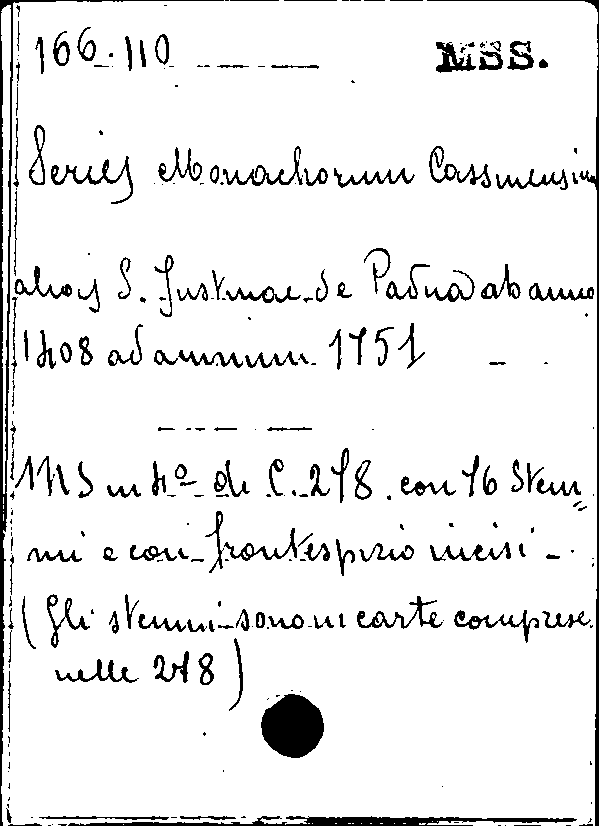 166.110 MSS.
Series Monachorum Cassinensium
alias S. Justinae de Padua ab anno
1408 ad annum 1751
MS in 4º de C. 278. con 16 Stem=
mi e con frontespizio incisi -
(Gli stemmi sono in carte comprese
nelle 278)